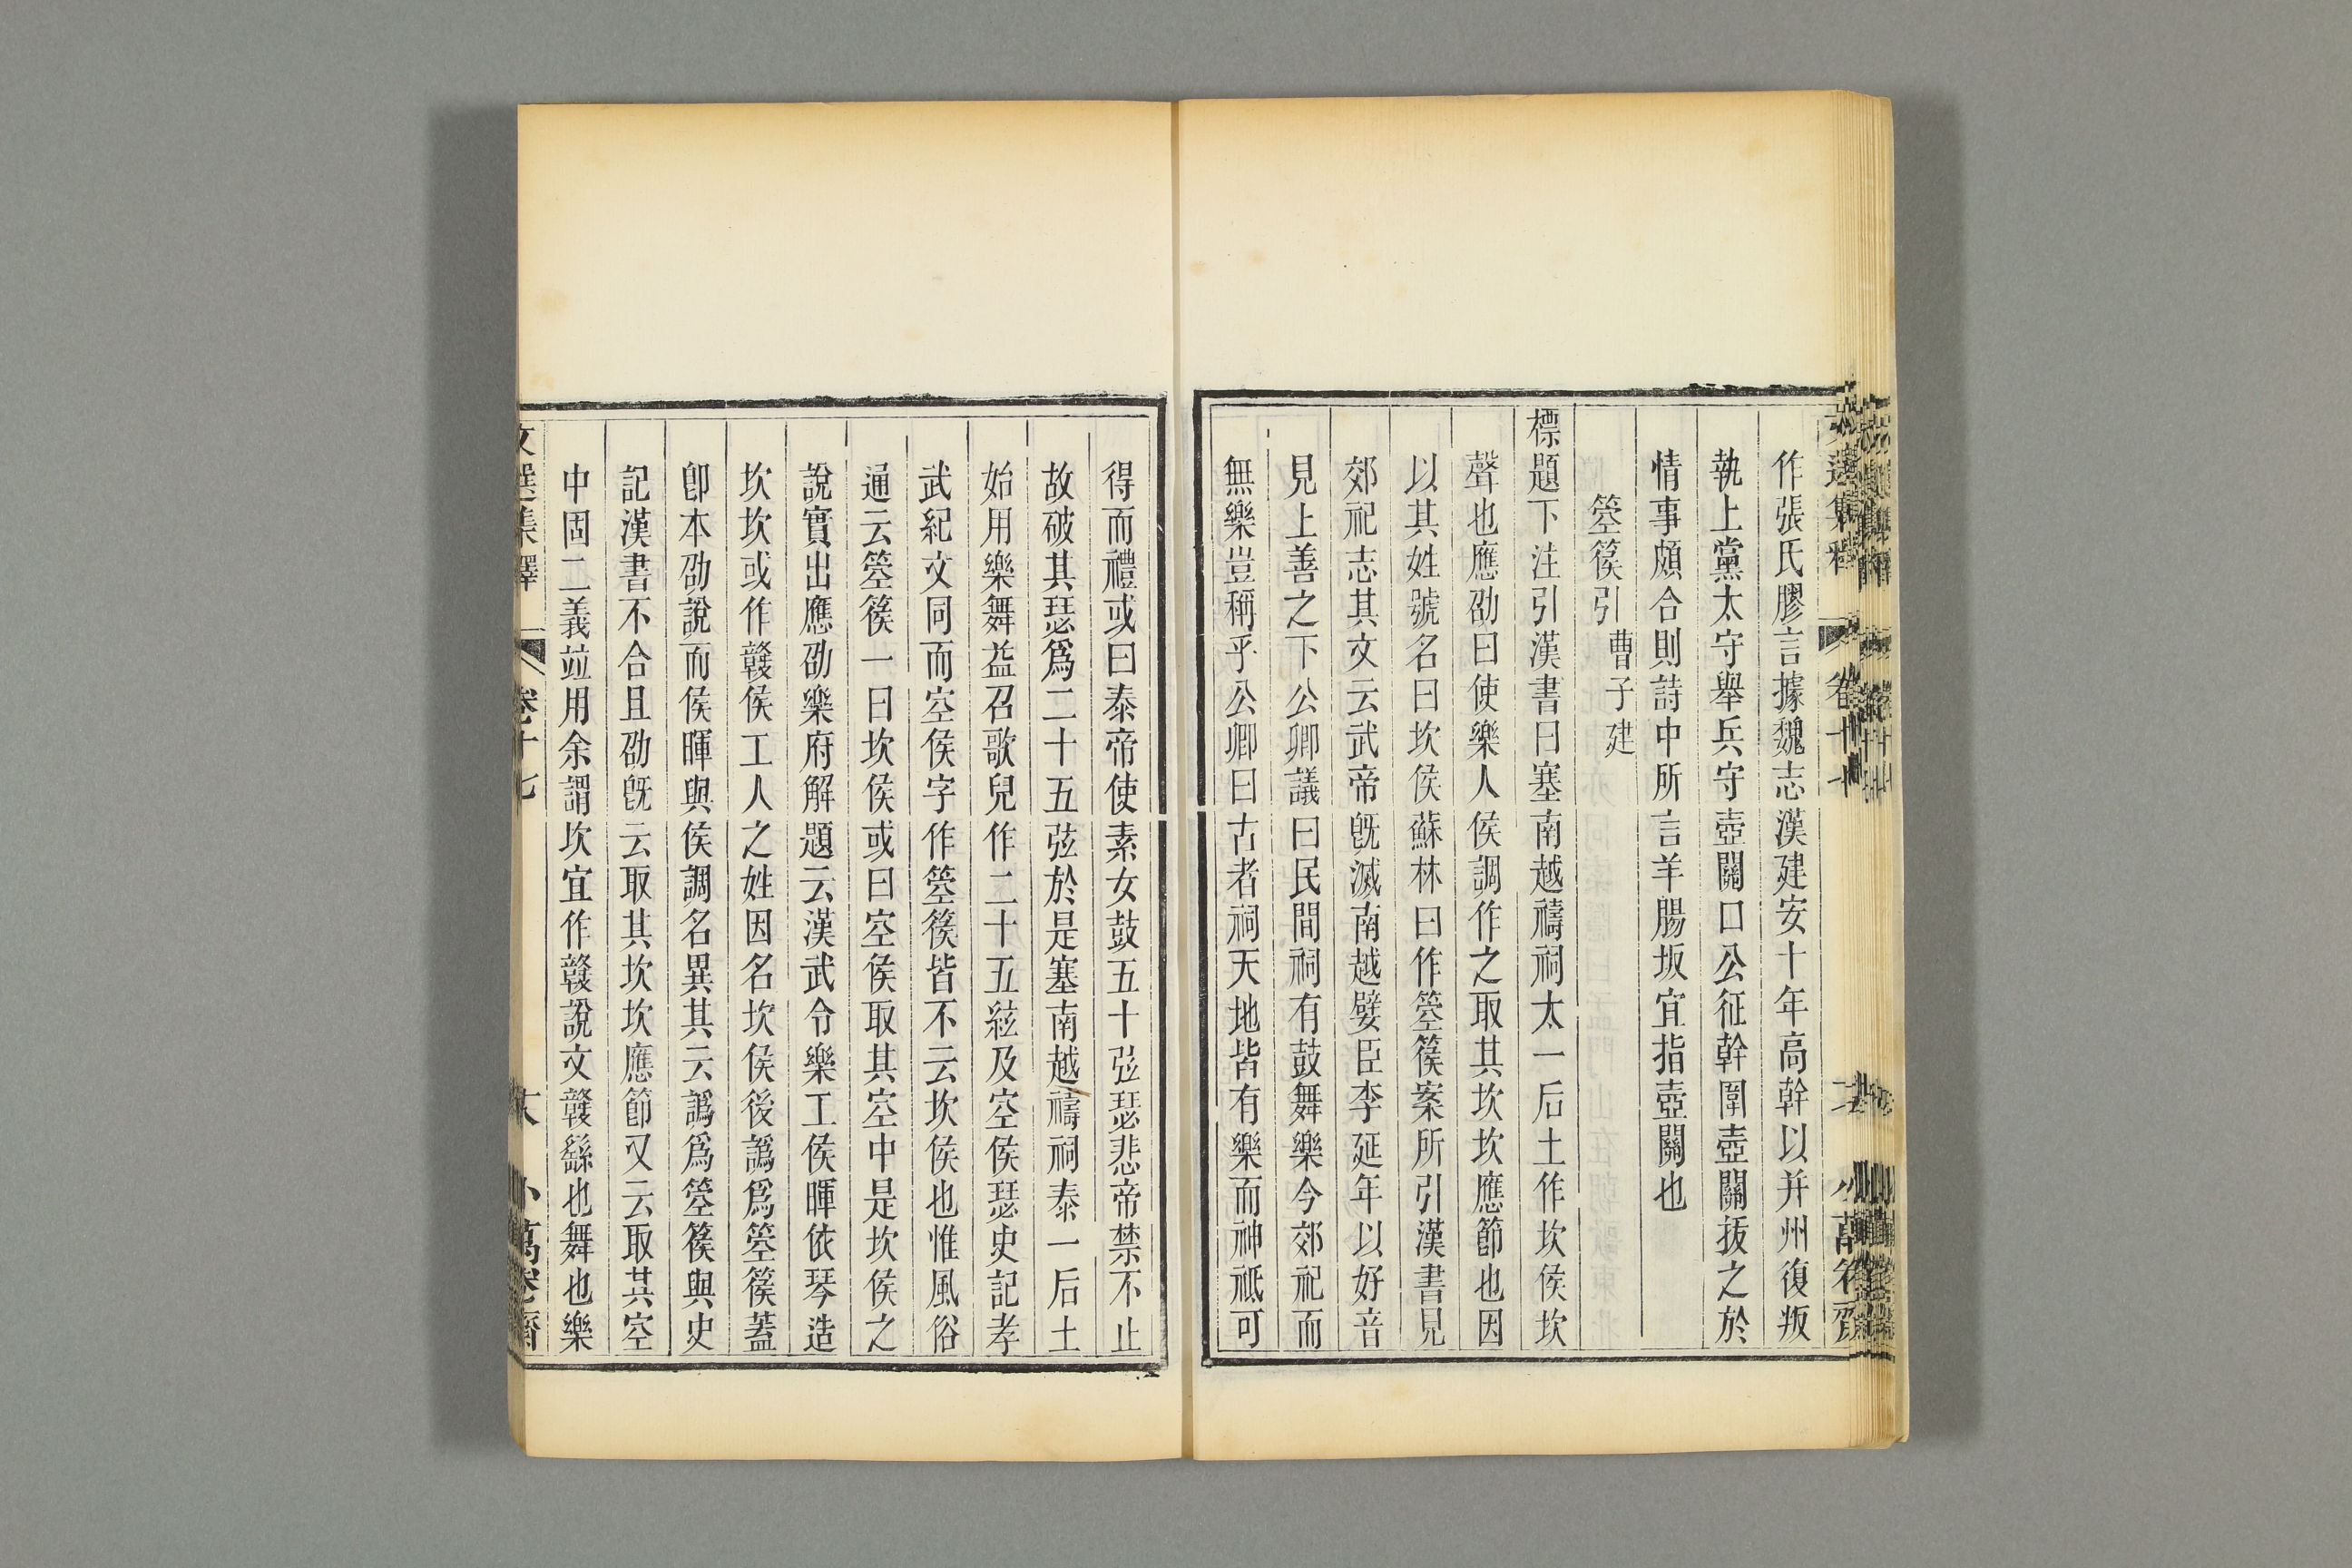 作張氏膠言據魏志漢建安十年高幹以并州復叛
執上黨太守舉兵守壺關口公征幹圍壺關拔之於
情事頗合則詩中所言羊腸坂宜指壺關也
箜篌引 曹子建
標題下注引漢書曰塞南越禱祠太一后土作坎侯坎
聲也應劭曰使樂人侯調作之取其坎坎應節也因
以其姓號名曰坎侯蘇林曰作箜篌案所引漢書見
郊祀志其文云武帝旣滅南越嬖臣李延年以好音
見上善之下公卿議曰民間祠有鼓舞樂今郊祀而
無樂豈稱乎公卿曰古者祠天地皆有樂而神祗可
得而禮或曰泰帝使素女鼓五十弦瑟悲帝禁不止
故破其瑟爲二十五弦於是塞南越禱祠泰一后土
始用樂舞益召歌兒作二十五絃及空侯瑟史記孝
武紀文同而空侯字作箜篌皆不云坎侯也惟風俗
通云箜篌一曰坎侯或曰空侯取其空中是坎侯之
說實出應劭樂府解題云漢武令樂工侯暉依琴造
坎坎或作竷侯工人之姓因名坎侯後譌爲箜篌蓋
卽本劭說而侯暉與侯調名異其云譌爲箜篌與史
記漢書不合且劭旣云取其坎坎應節又云取其空
中固二義竝用余謂坎宜作竷說文竷繇也舞也樂
文選集釋 卷十七 小萬卷齋